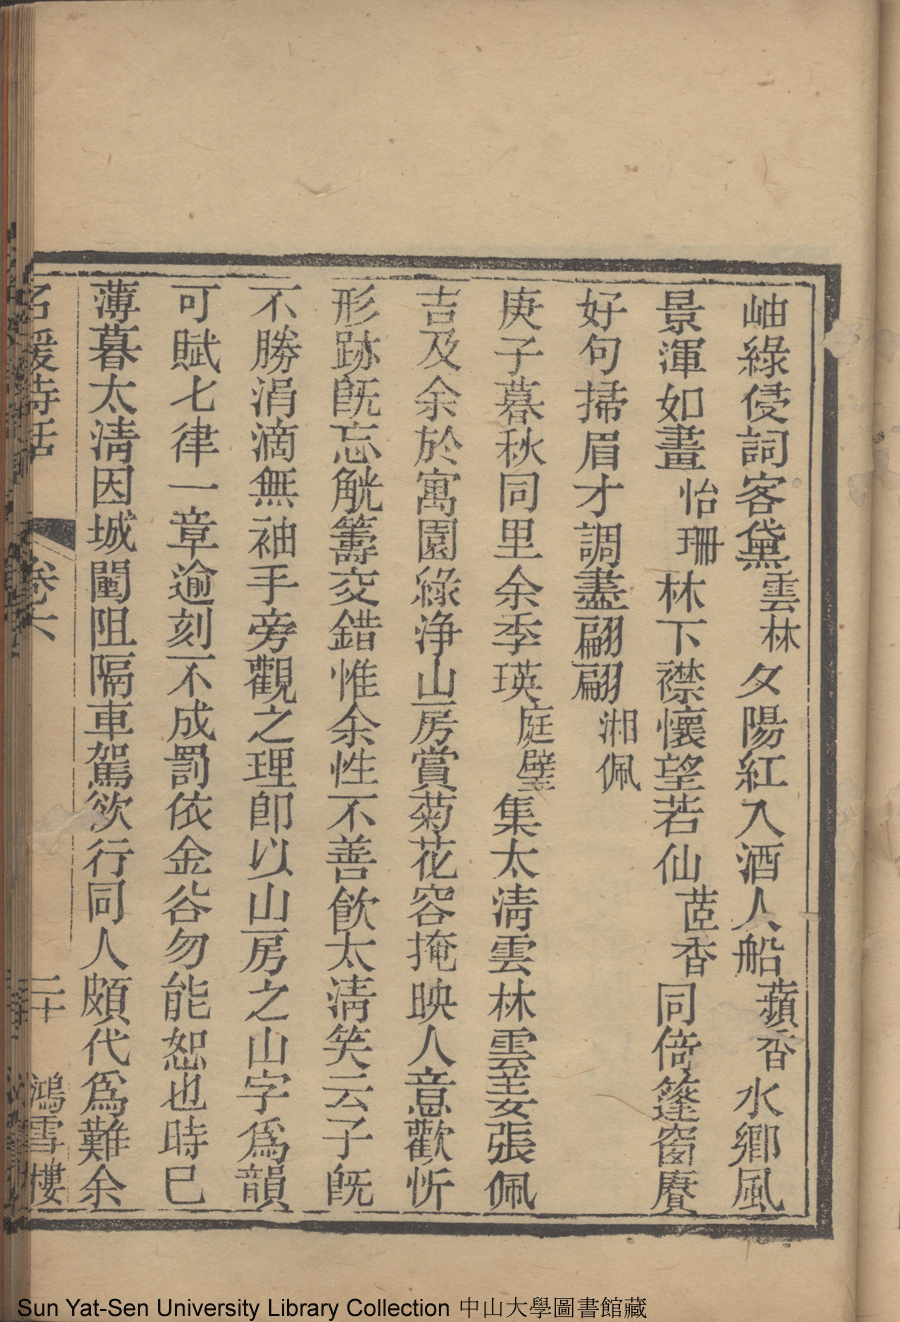 岫綠侵詞客黛雲林夕陽紅入酒人船蘋香水鄉風
景渾如畫怡珊林下襟懷望若仙茝香同倚篷窗賡
好句掃眉才調盡翩翩湘佩
庚子暮秋同里余季瑛庭璧集太清雲林雲姜張佩
吉及余於寓園綠淨山房賞菊花容掩映人意歡忻
形跡旣忘觥籌交錯惟余性不善飮太淸笑云子旣
不勝涓滴無袖手旁觀之理卽以山房之山字爲韻
可賦七律一章逾刻不成罰依金谷勿能恕也時已
薄暮太淸因城闉阻隔車駕欲行同人頗代爲難余
名媛詩話 卷六 二十 鴻雪樓
Sun Yat-Sen University Library Collection 中山大學圖書館藏